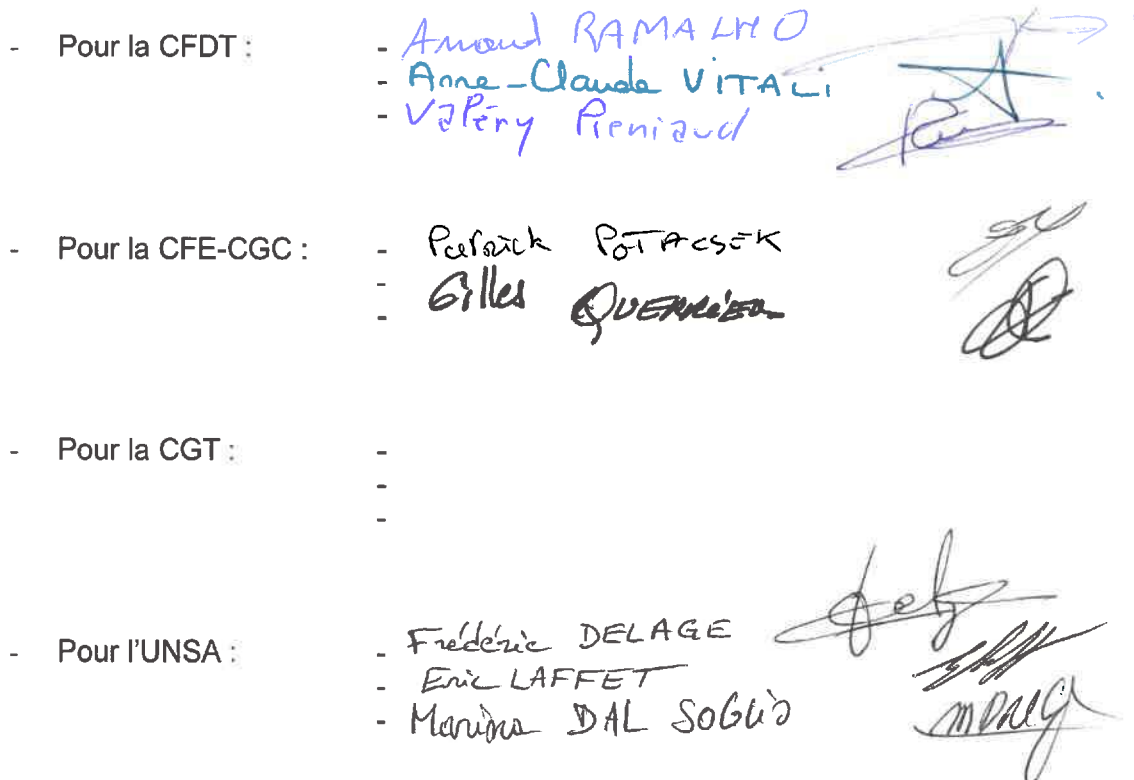 - Pour la CFDT : - Arnaud RAMALHO
- Anne-Claude VITALI
- Valéry Pieniaud
- Pour la CFE-CGC : - Patrick POTACSEK
- Gilles QUERRIER
-
- Pour la CGT : -
-
-
- Pour l'UNSA : - Frédéric DELAGE
- Eric LAFFET
- Marina DAL SOGLIO